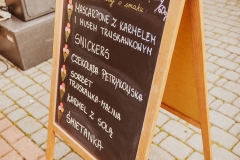 o smaku
MASCARPONE Z KARMELEM
I MUSEM TRUSKAWKOWYM
SNICKERS
CZEKOLADA PETRYKOWSKA
SORBET
TRUSKAWKA-MALINA
KARMEL Z SOLĄ
ŚMIETANKA